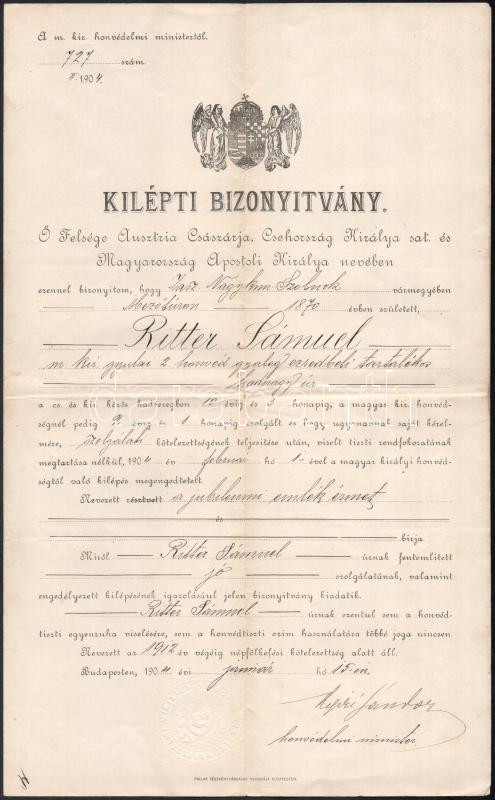 A m. kir. honvédelmi ministertől.
727 szám.
II. 1904.
KILÉPTI BIZONYITVÁNY.
Ő Felsége Ausztria Császárja, Csehország Királya sat. és
Magyarország Apostoli Királya nevében
ezennel bizonyitom, hogy Jász Nagykun Szolnok vármegyében
Mezőtúron 1870 évben született,
Ritter Sámuel
m. kir. gyulai 2. honvéd gyalog ezredbeli tartalékos
hadnagy úr
a cs. és kir. közös hadseregben 10 évig és 3 hónapig, a magyar kir. honvéd-
ségnél pedig 2 évig és 1 hónapig szolgált és hogy ugyanannak saját kérel-
mére, szolgálati kötelezettségének teljesitése után, viselt tiszti rendfokozatának
megtartása nélkül, 1904 év február hó 1-ével a magyar királyi honvéd-
ségtől való kilépés megengedtetett.
Nevezett résztvett a jubileumi emlék érmet
és
birja
Miről Ritter Sámuel úrnak fentemlitett
jó szolgálatának, valamint
engedélyezett kilépésének igazolásául jelen bizonyitvány kiadatik.
Ritter Sámuel úrnak ezentul sem a honvéd-
tiszti egyenruha viselésére, sem a honvédtiszti czim használatára többé joga nincsen.
Nevezett az 1912 év végéig népfölkelési kötelezettség alatt áll.
Budapesten, 1904 évi január hó 15-én.
Sándor
honvédelmi minister
PALLAS RÉSZVÉNYTÁRSASÁG NYOMDÁJA BUDAPESTEN.